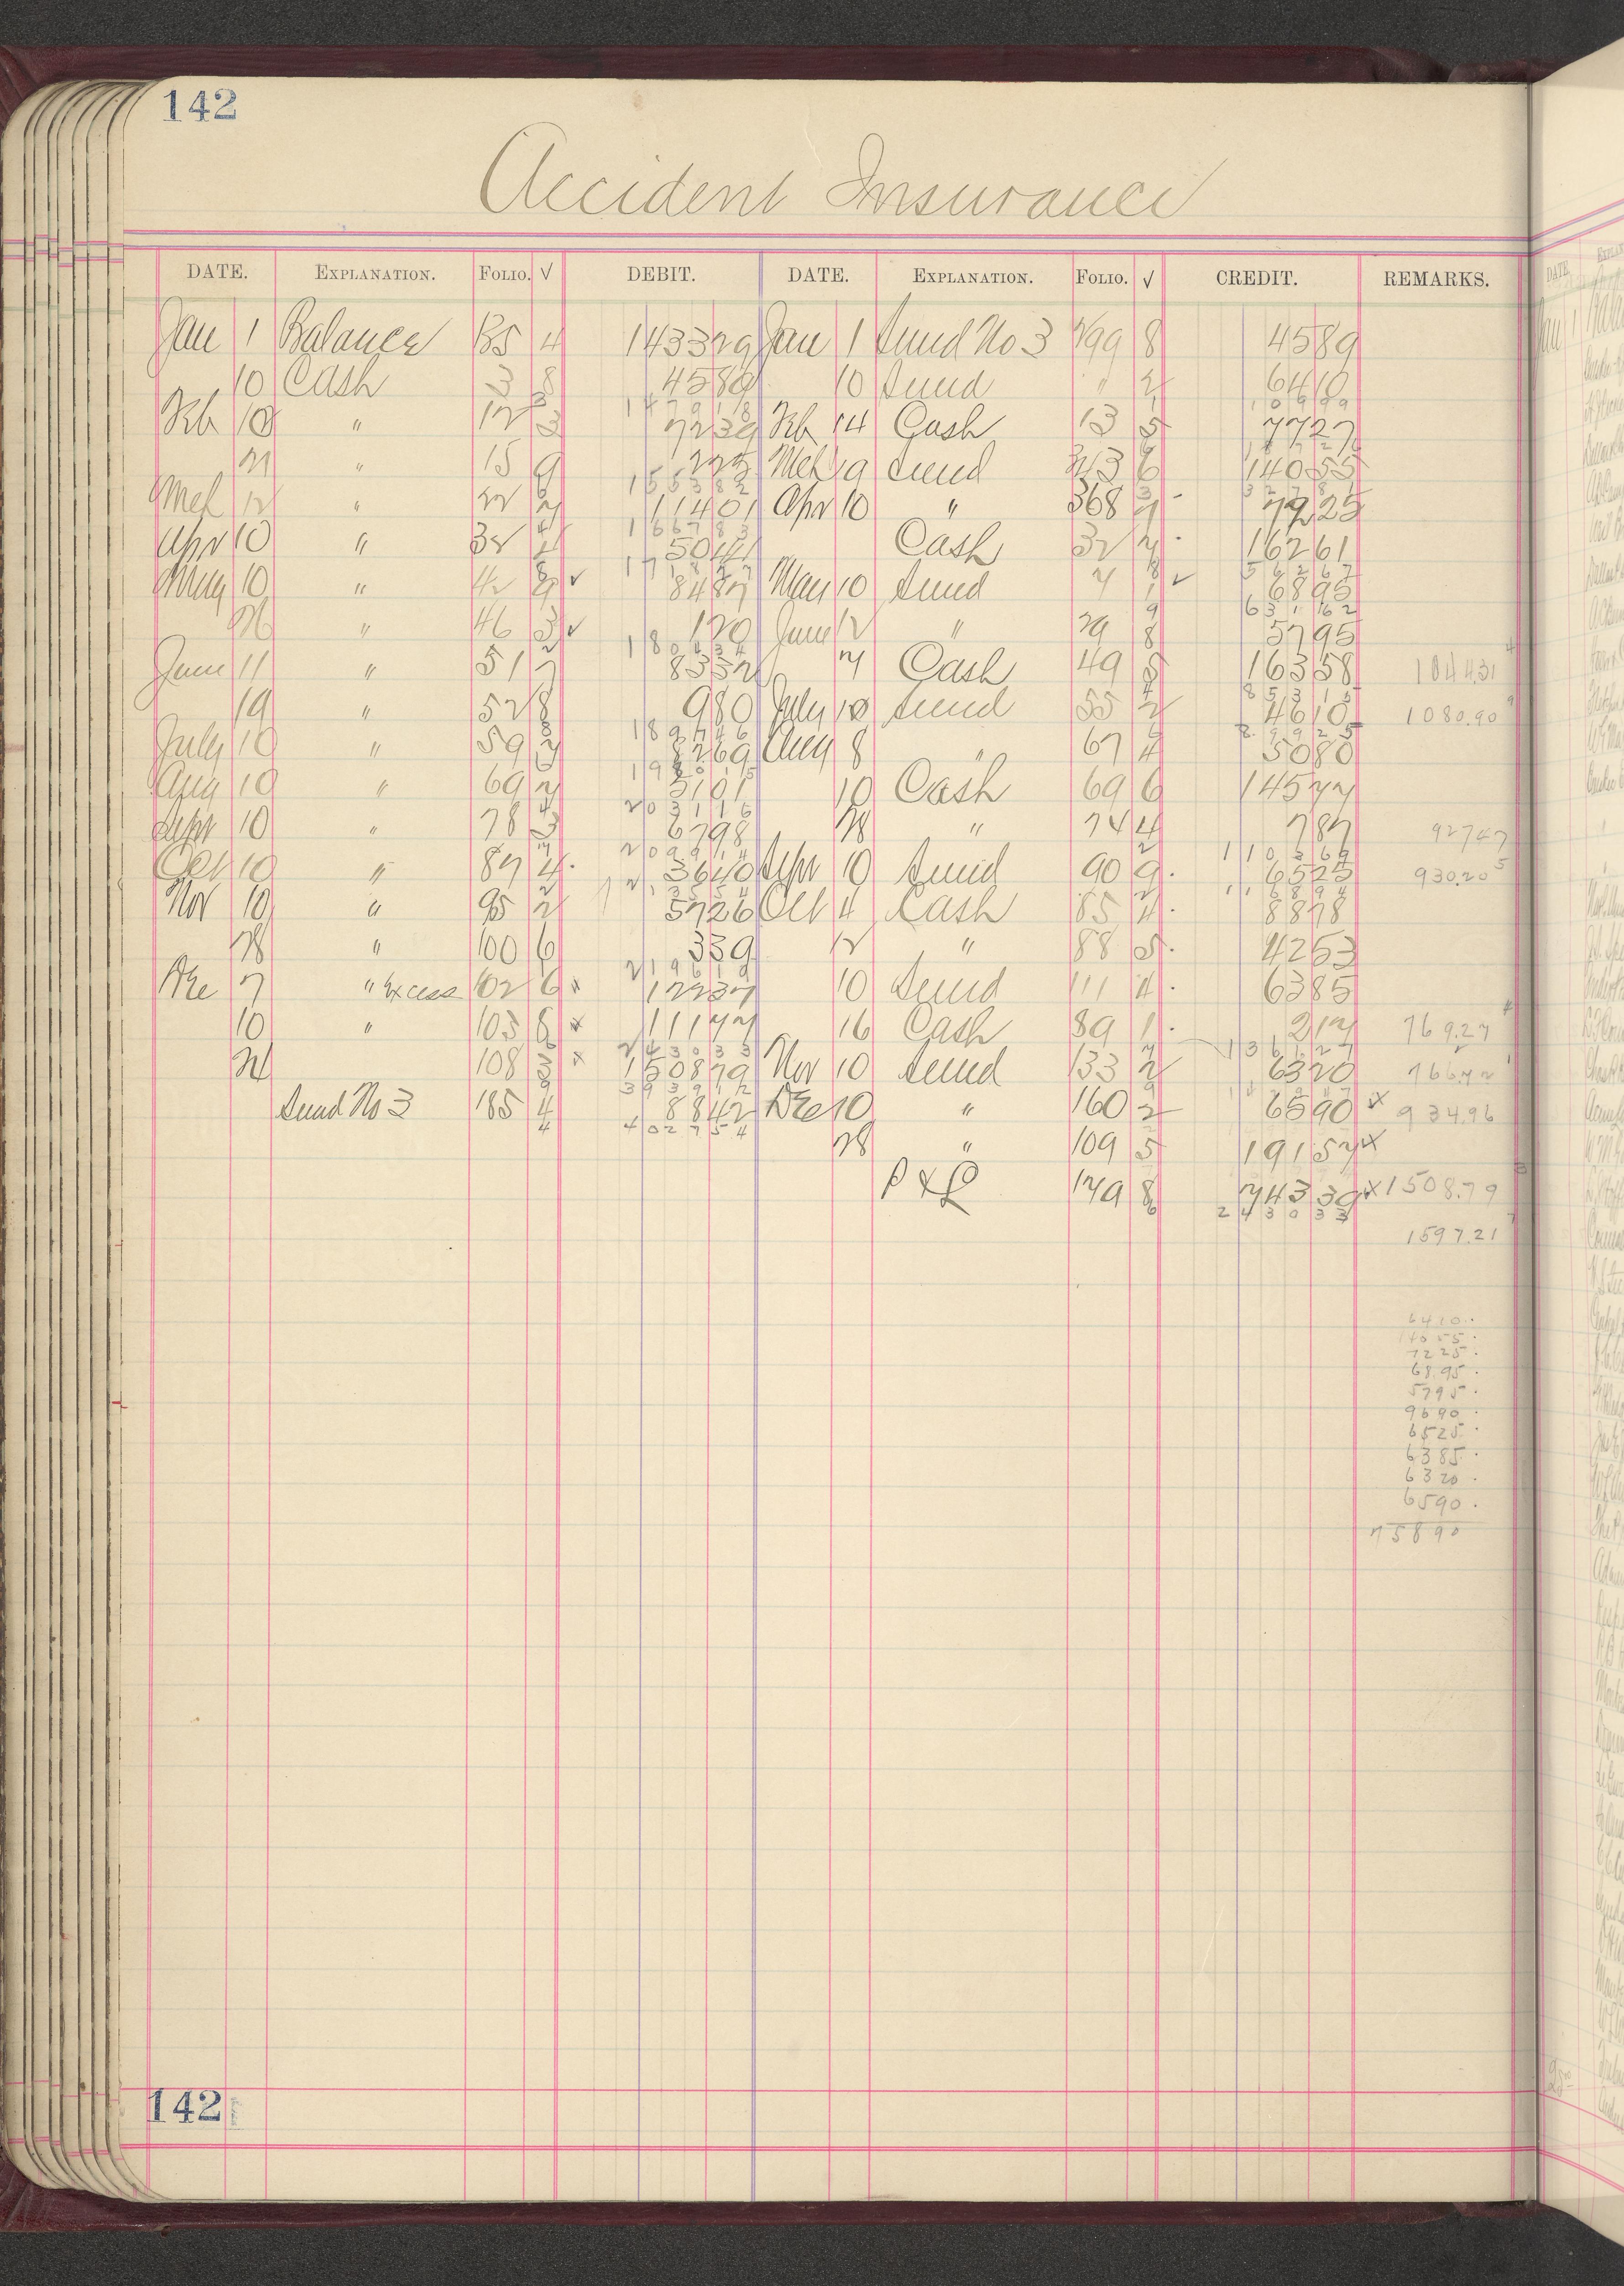 142
Accident Insurance
DATE. EXPLANATION. FOLIO. √ DEBIT. DATE. EXPLANATION. FOLIO. √ CREDIT. REMARKS.
Jan 1 Balance 135 4 1433 29 Jan 1 Sund No 3 299 8 45 89
10 Cash 3 8 45 89 10 Sund " 2 64 10
1 4 7 9 1 8 1 0 9 9 9
Feb 10 " 12 3 72 39 Feb 14 Cash 13 5 77 27
21 " 15 9 2 25 Mch 19 Sund 313 6 140 55
1 5 5 3 8 2
Mch 12 " 22 2 114 01 Apr 10 " 368 7 72 25
1 6 6 7 8 3
Apr 10 " 32 2 50 44 Cash 32 2 162 61
May 10 " 42 9 √ 84 87 May 10 Sund 7 1 √ 68 95
6 3 1 6 2
26 " 46 3 √ 1 20 June 12 " 29 8 57 95
1 8 0 6 3 4
June 11 " 51 7 83 32 7 Cash 49 5 163 58 1044.31
19 " 52 8 9 80 July 10 Sund 55 2 46 10 1080.90
1 8 9 9 4 6
July 10 " 59 2 82 69 Aug 8 " 67 4 50 80
Aug 10 " 69 2 51 01 10 Cash 69 6 145 77
2 0 3 1 1 6
Sept 10 " 78 3 67 98 28 " 74 4 7 87 927 47
2 0 9 9 1 4 1 1 0 3 6 9
Oct 10 " 87 4 36 40 Sept 10 Sund 90 9 65 25 930.20
Nov 10 " 95 2 57 26 Oct 4 Cash 85 4 88 78
28 " 100 6 3 39 12 " 88 5 42 53
2 1 9 6 1 9
Dec 7 " Excess 102 6 x 122 37 10 Sund 111 4 63 85
10 " 103 8 x 111 77 16 Cash 89 1 2 17 769.27
2 4 3 0 3 3 1 3 6 1 2 7
21 108 3 x 1508 79 Nov 10 Sund 133 2 63 20 766.72
3 9 3 9 1 2
Sund No 3 185 4 88 42 Dec 10 " 160 2 65 90 x 934.96
4 0 2 7 5 4
28 " 109 5 191 57 x
P & L 179 8 743 39 x 1508.79
2 4 3 0 3 3
1597.21
6410
14055
7225
6895
5795
9690
6525
6385
6320
6590
75890
142